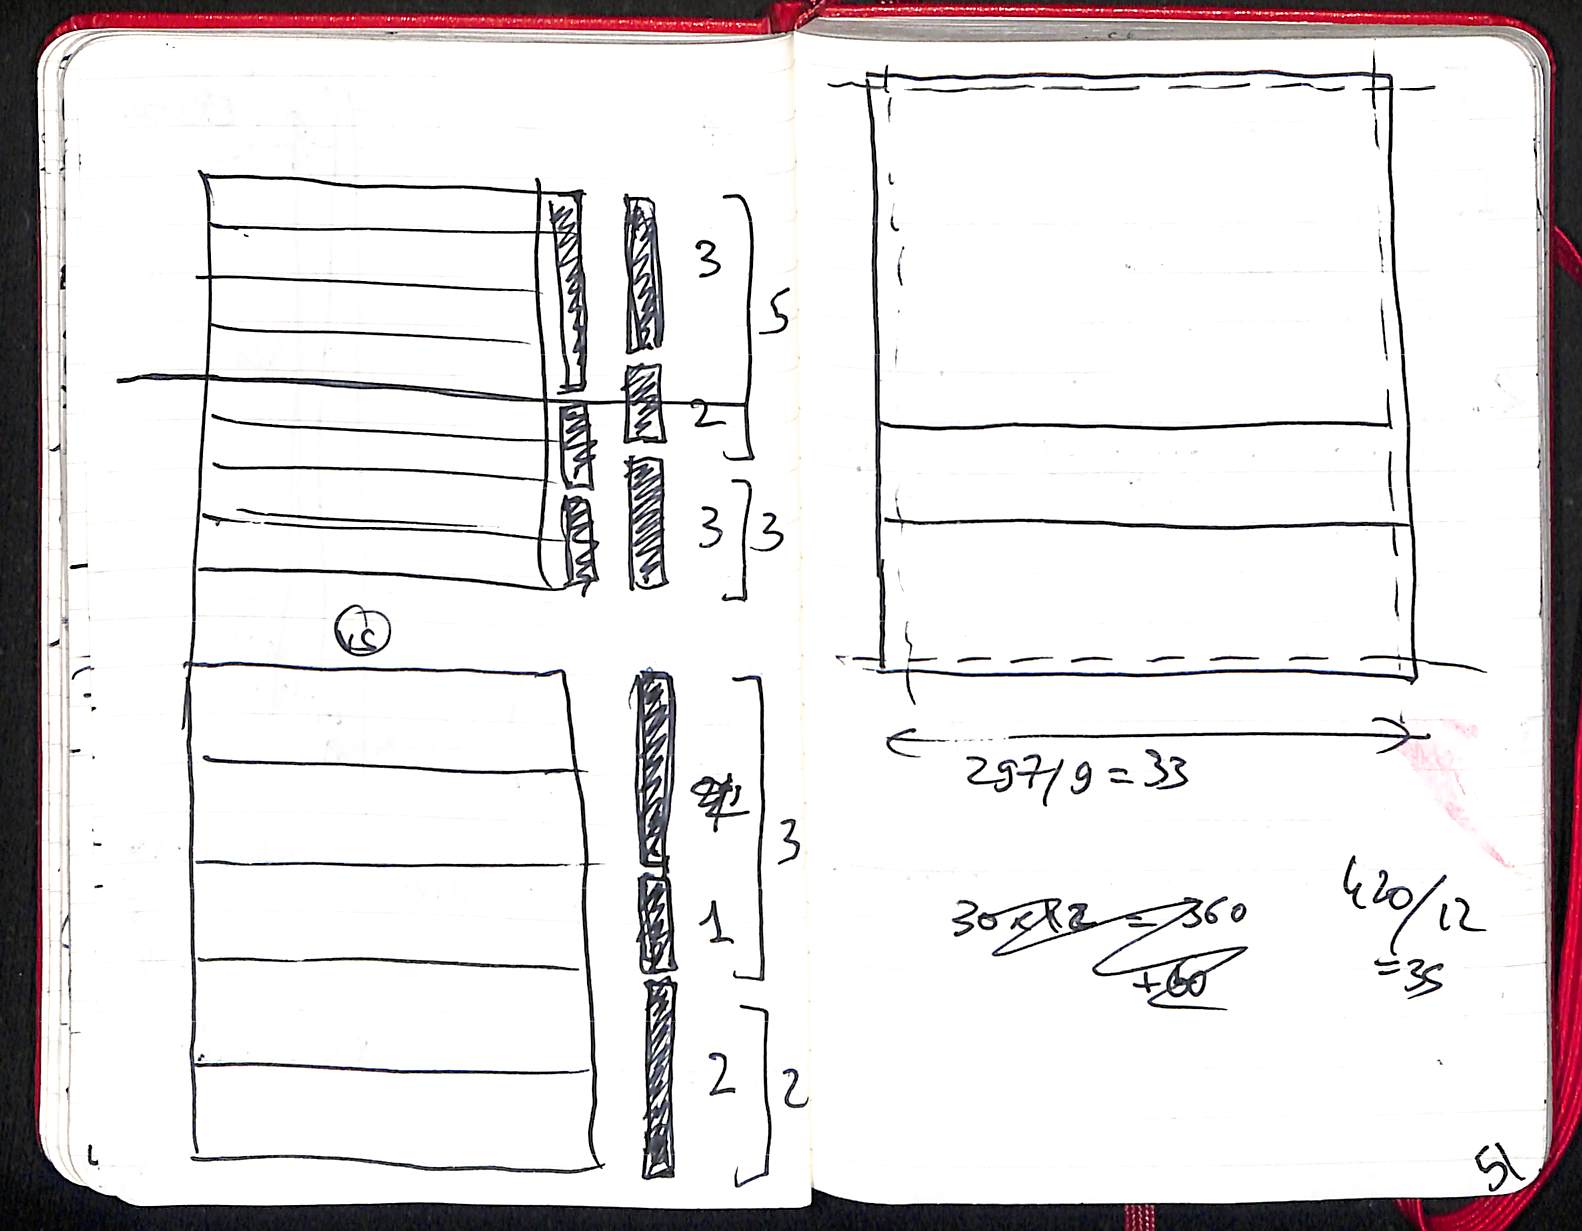 3
5
2
3
3
3
1
2
2
297/9 = 33
30 x 12 = 360
+60
420/12
= 35
51